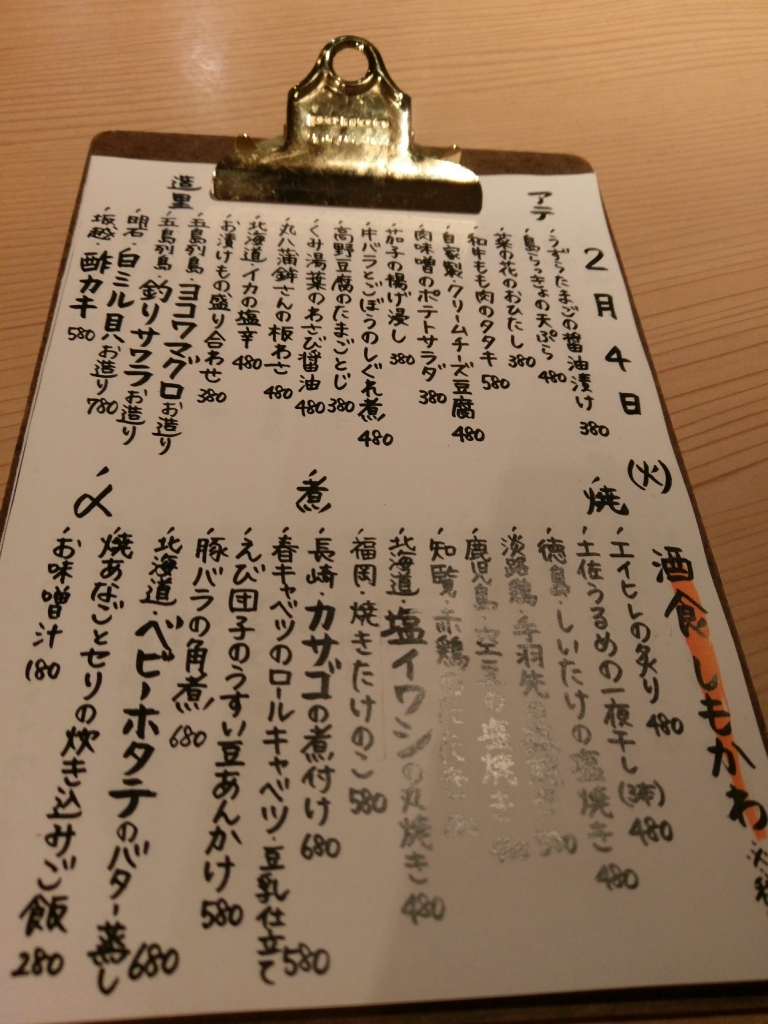 2月4日(火)
酒食しもかわ
アテ
うずらたまごの醤油漬け 380
島らっきょの天ぷら 480
菜の花のおひたし 380
和牛もも肉のタタキ 580
自家製・クリームチーズ豆腐 480
肉味噌のポテトサラダ 380
茄子の揚げ浸し 380
牛バラとごぼうのしぐれ煮 480
高野豆腐のたまごとじ 380
くみ湯葉のわさび醤油 480
丸八蒲鉾さんの板わさ 480
北海道・イカの塩辛 480
お漬けもの盛り合わせ 380
造里
五島列島・ヨコワマグロお造り
五島列島・釣りサワラお造り
明石・白ミル貝お造り 780
坂越・酢カキ 580
焼
エイヒレの炙り 480
土佐うるめの一夜干し(3本) 480
徳島・しいたけの塩焼き 480
淡路鶏・手羽先の
鹿児島・空豆の塩焼き
知覧・赤鶏の
北海道・塩イワシの丸焼き 480
福岡・焼きたけのこ 580
煮
長崎・カサゴの煮付け 680
春キャベツのロールキャベツ・豆乳仕立て 580
えび団子のうすい豆あんかけ 580
豚バラの角煮 680
北海道・ベビーホタテのバター蒸し 680
〆
焼あなごとセリの炊き込みご飯 280
お味噌汁 180